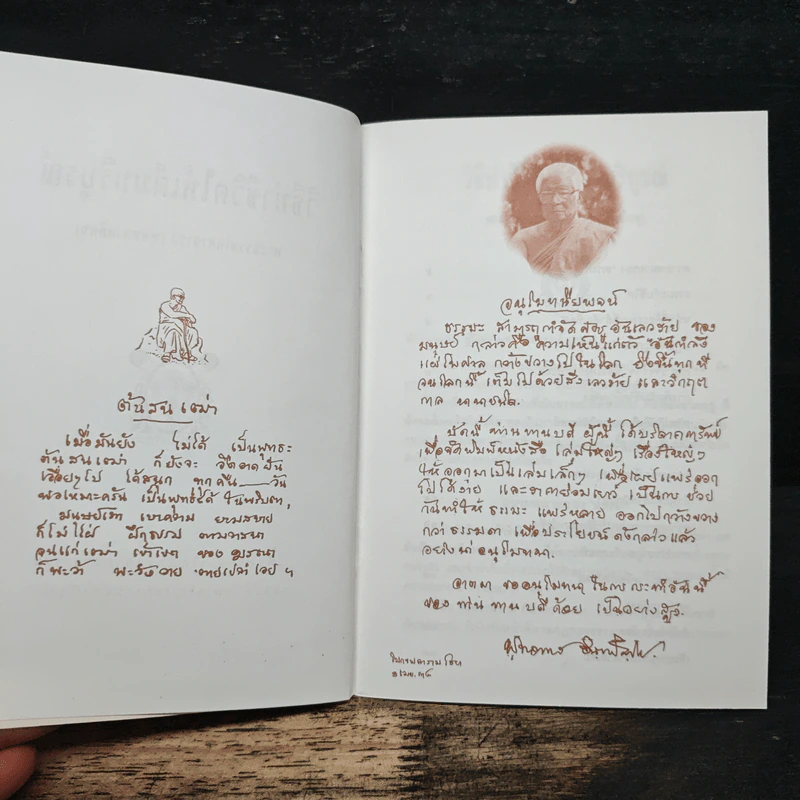 ต้นสนเฒ่า
เมื่อมันยัง ไม่ได้ เป็นพุทธะ
ต้นสนเฒ่า ก็ยังจะ
เรื่อยๆไป ได้สนุก ทุกคืนวัน
พอเหมาะครัน เป็นพุทธะได้ ในพริบตา,
มนุษย์เรา เอาความ
ก็ไม่ไฝ่ ฝึกฝน ตามวาสนา
จนแก่เฒ่า เข้าเขต ของ มรณา
ก็พะว้า พะวังวาย ตายเปล่าเอย ฯ
อนุโมทนียพจน์
ธรรมะ สามารถกำจัดศัตรู อันเลวร้าย ของ
มนุษย์ กล่าวคือ ความเห็นแก่ตัว อันกำลัง
แผ่ไพศาล กว้างขวางไปในโลก ยิ่งขึ้นทุกที
จนโลกนี้ เต็มไปด้วยสิ่ง เลวร้าย และวิกฤต
กาล นานาชนิด.
บัดนี้ ท่านทานบดี ผู้นี้ ได้บริจาคทรัพย์
เพื่อจัดพิมพ์หนังสือ เล่มใหญ่ๆ เรื่องใหญ่ๆ
ให้ ออกมาเป็นเล่มเล็กๆ เพื่อเผยแพร่ออก
ไปได้ง่าย และราคาย่อมเยาว์ เป็นการช่วย
กันทำให้ ธรรมะ แพร่หลาย ออกไปกว้างขวาง
กว่า ธรรมดา เพื่อประโยชน์ ดังกล่าวแล้ว
อย่างน่า อนุโมทนา.
อาตมา ขออนุโมทนา ในการกระทำอันนี้
ของ ท่านทานบดีด้วย เป็นอย่างสูง.
พุทธทาส อินทปัญโญ.
โมกขพลาราม ไชยา